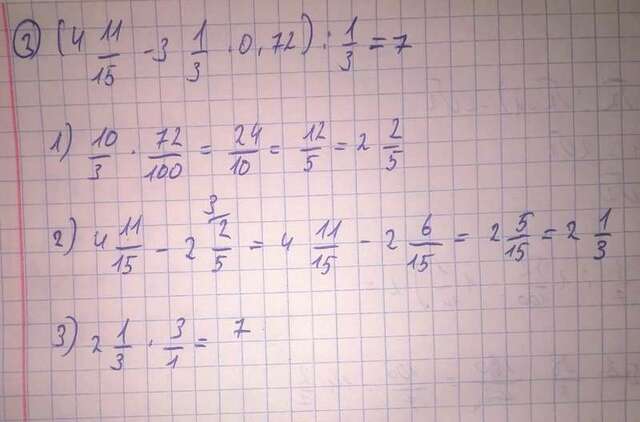 3) (4 11/15 - 3 1/3 · 0,72) : 1/3 = 7
1) 10/3 · 72/100 = 24/10 = 12/5 = 2 2/5
2) 4 11/15 - 2 2/5 (3 = 4 11/15 - 2 6/15 = 2 5/15 = 2 1/3
3) 2 1/3 · 3/1 = 7